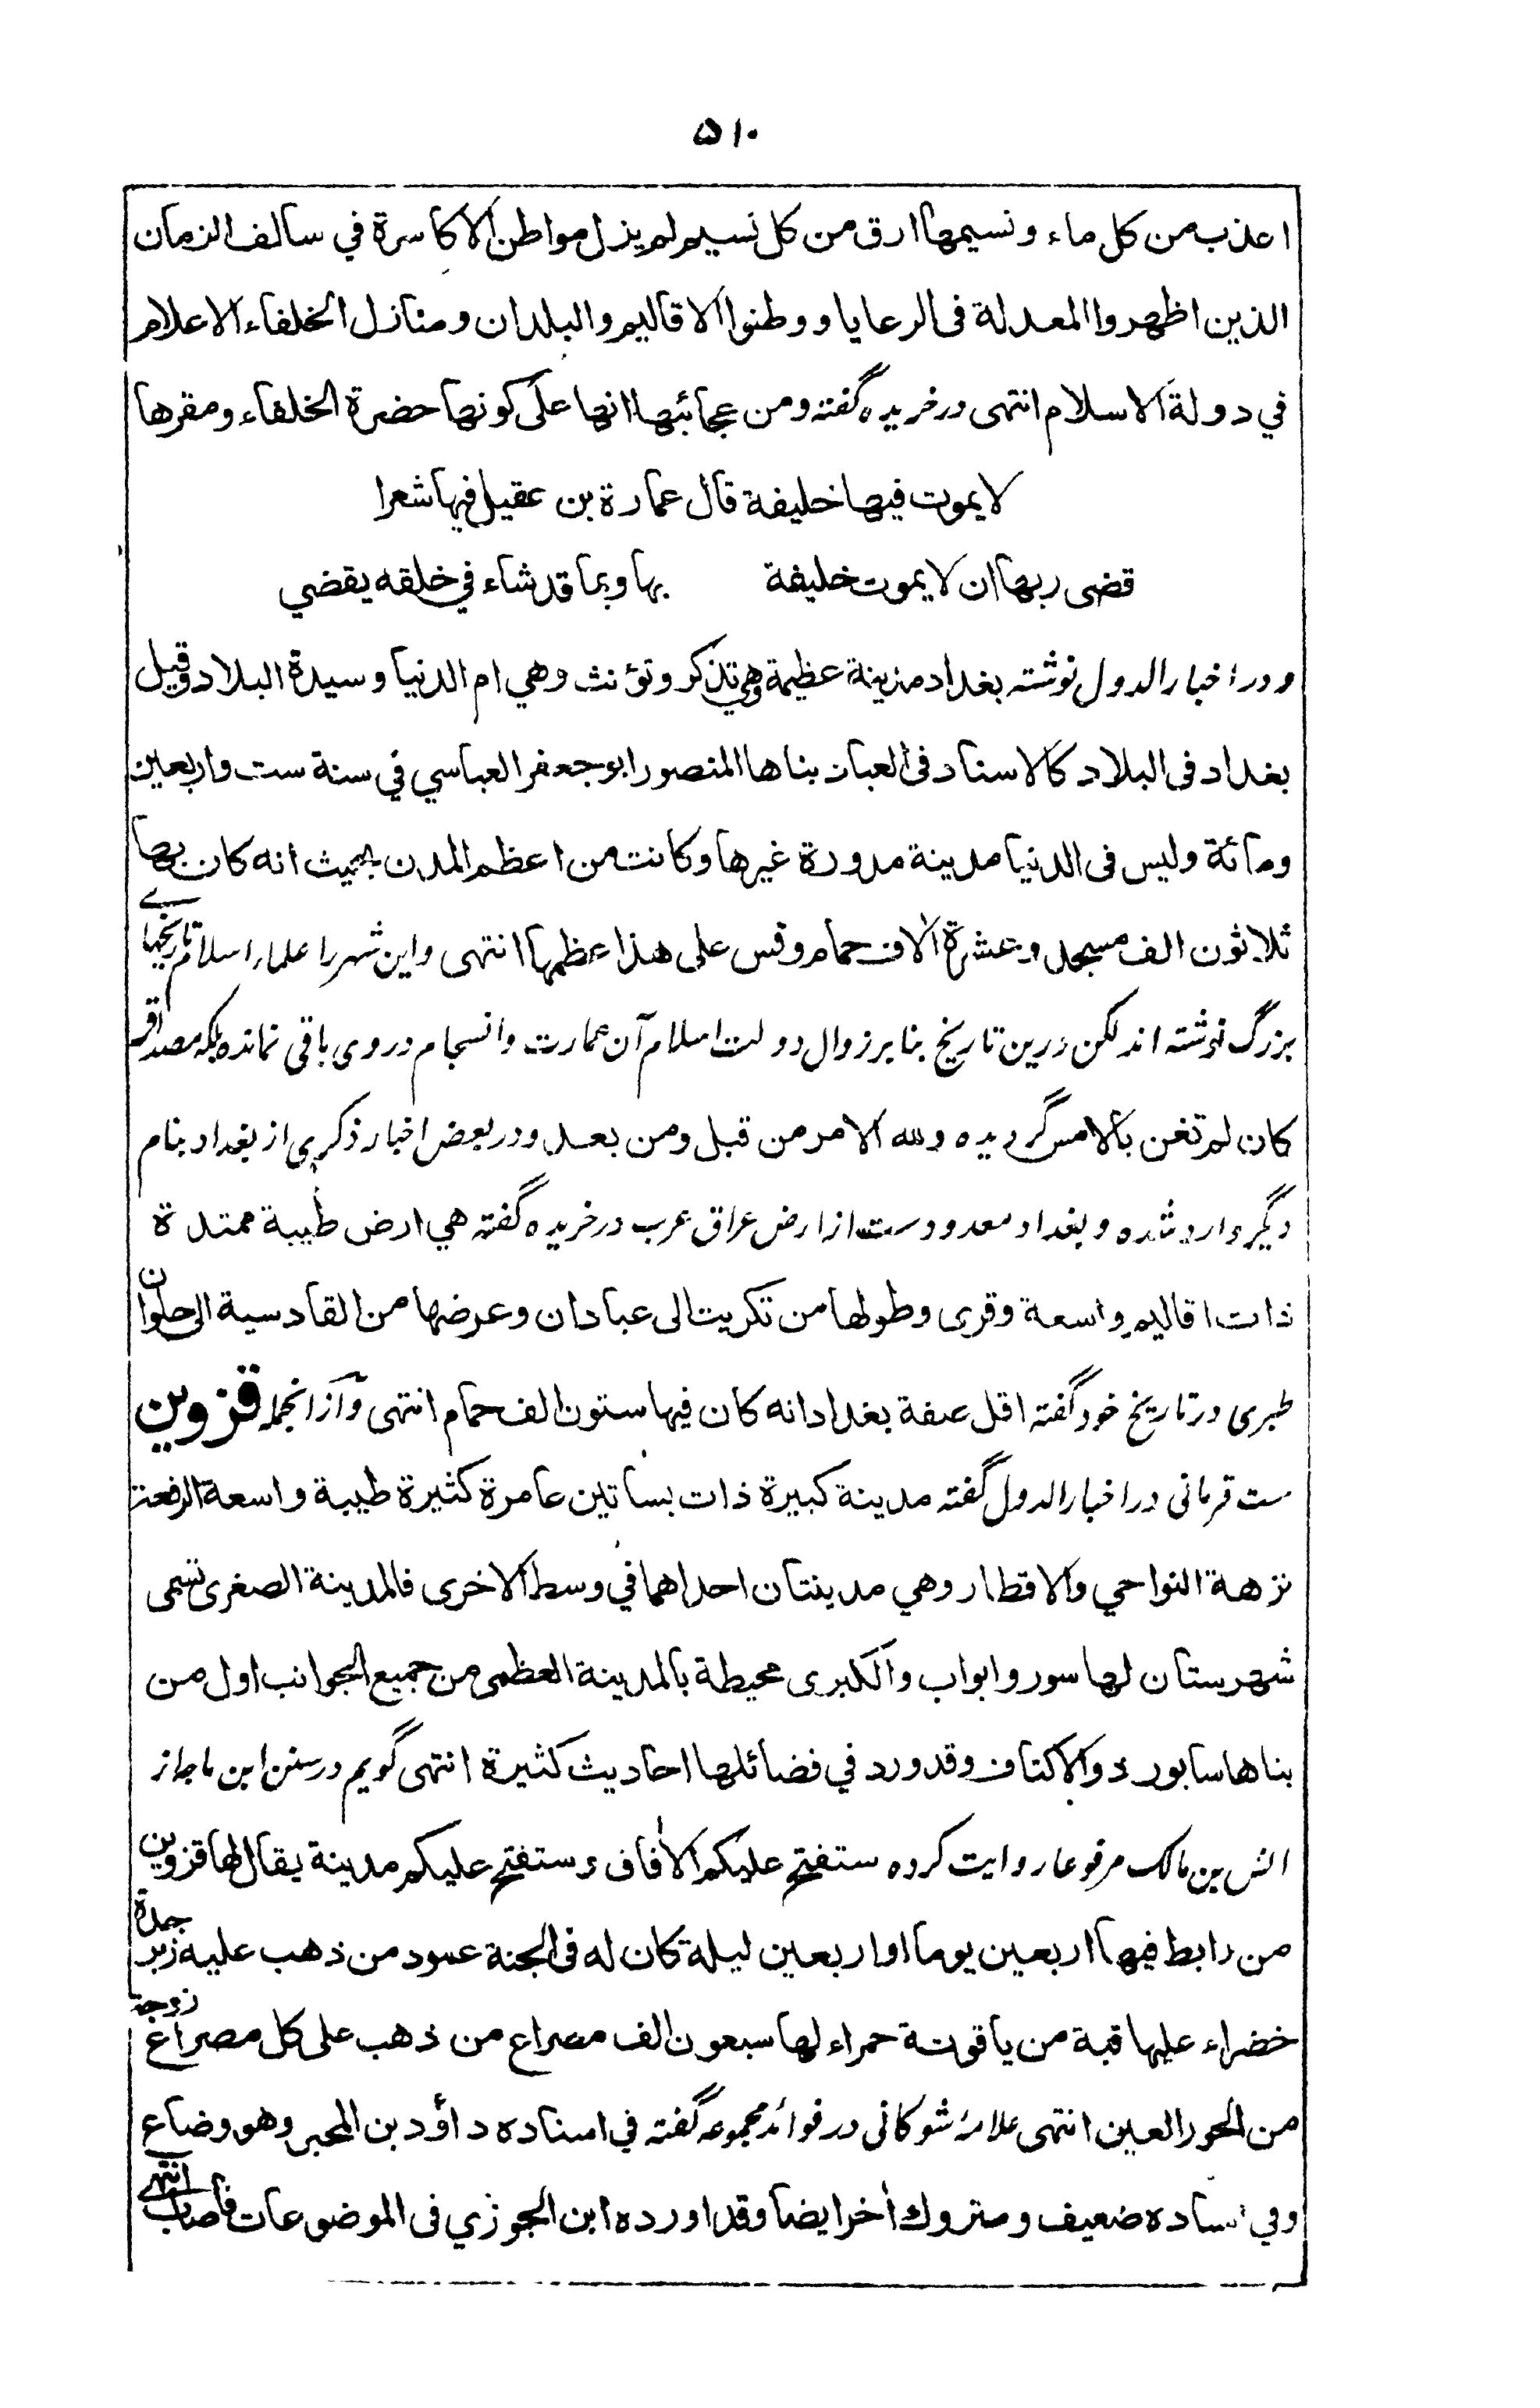 ۵۱۰
اعذب من كل ماء ونسيمها ارق من كل نسيم لم يزل مواطن الاكاسرة في سالف الزمان
الذين اظهروا المعدلة فى الرعايا ووطنوا الاقاليم والبلدان ومنازل الخلفاء الاعلام
في دولة الاسلام انتهى در خريده گفته ومن عجائبها انها على كونها حضرة الخلفاء ومقرها
لا يموت فيها خليفة قال عمارة بن عقيل فيها شعرا
قضى ربها ان لا يموت خليفة بها وبما قد شاء في خلقه يقضي
و در اخبار الدول نوشته بغداد مدينة عظيمة وهي تذكر وتؤنث وهي ام الدنيا وسيدة البلاد وقيل
بغداد فى البلاد كالاستاد فى العباد بناها المنصور ابو جعفر العباسي في سنة ست واربعين
ومائة وليس فى الدنيا مدينة مدورة غيرها وكانت من اعظم المدن بحيث انه كان بها
ثلاثون الف مسجد وعشرة الاف حمام وقس على هذا عظمها انتهى و اين شهر را علماء اسلام تاريخهاے
بزرگ نوشته اند لكن درين تاريخ بنا بر زوال دولت اسلام آن عمارت و انسجام در وى باقى نمانده بلكه مصداق
كان لم تغن بالامس گرديده ولله الامر من قبل ومن بعد و در بعض اخبار ذكرى از بغداد بنام
ديگر وارد شده و بغداد معدودست از ارض عراق عرب در خريده گفته هي ارض طيبة ممتدة
ذات اقاليم واسعة وقرى وطولها من تكريت الى عبادان وعرضها من القادسية الى حلوان
طبرى در تاريخ خود گفته اقل صفة بغداد انه كان فيها ستون الف حمام انتهى و ازانجمله قزوين
ست قرمانى در اخبار الدول گفته مدينة كبيرة ذات بساتين عامرة كثيرة طيبة واسعة الرقعة
نزهة النواحي والاقطار وهي مدينتان احداهما في وسط الاخرى فالمدينة الصغرى تسمى
شهرستان لها سور وابواب والكبرى محيطة بالمدينة العظمى من جميع الجوانب اول من
بناها سابور ذو الاكتاف وقد ورد في فضائلها احاديث كثيرة انتهى گويم در سنن ابن ماجه از
انس بن مالك مرفوعا روايت كرده ستفتح عليكم الافاق وستفتح عليكم مدينة يقال لها قزوين
من رابط فيها اربعين يوما او اربعين ليلة كان له فى الجنة عمود من ذهب عليه زبرجدة
خضراء عليها قبة من ياقوتة حمراء لها سبعون الف مصراع من ذهب على كل مصراع زوجة
من الحور العين انتهى علامه شوكانى در فوائد مجموعه گفته في اسناده داؤد بن المحبر وهو وضاع
وفي اسناده ضعيف ومتروك أخر ايضا وقد اورده ابن الجوزي فى الموضوعات فاصاب انتهے